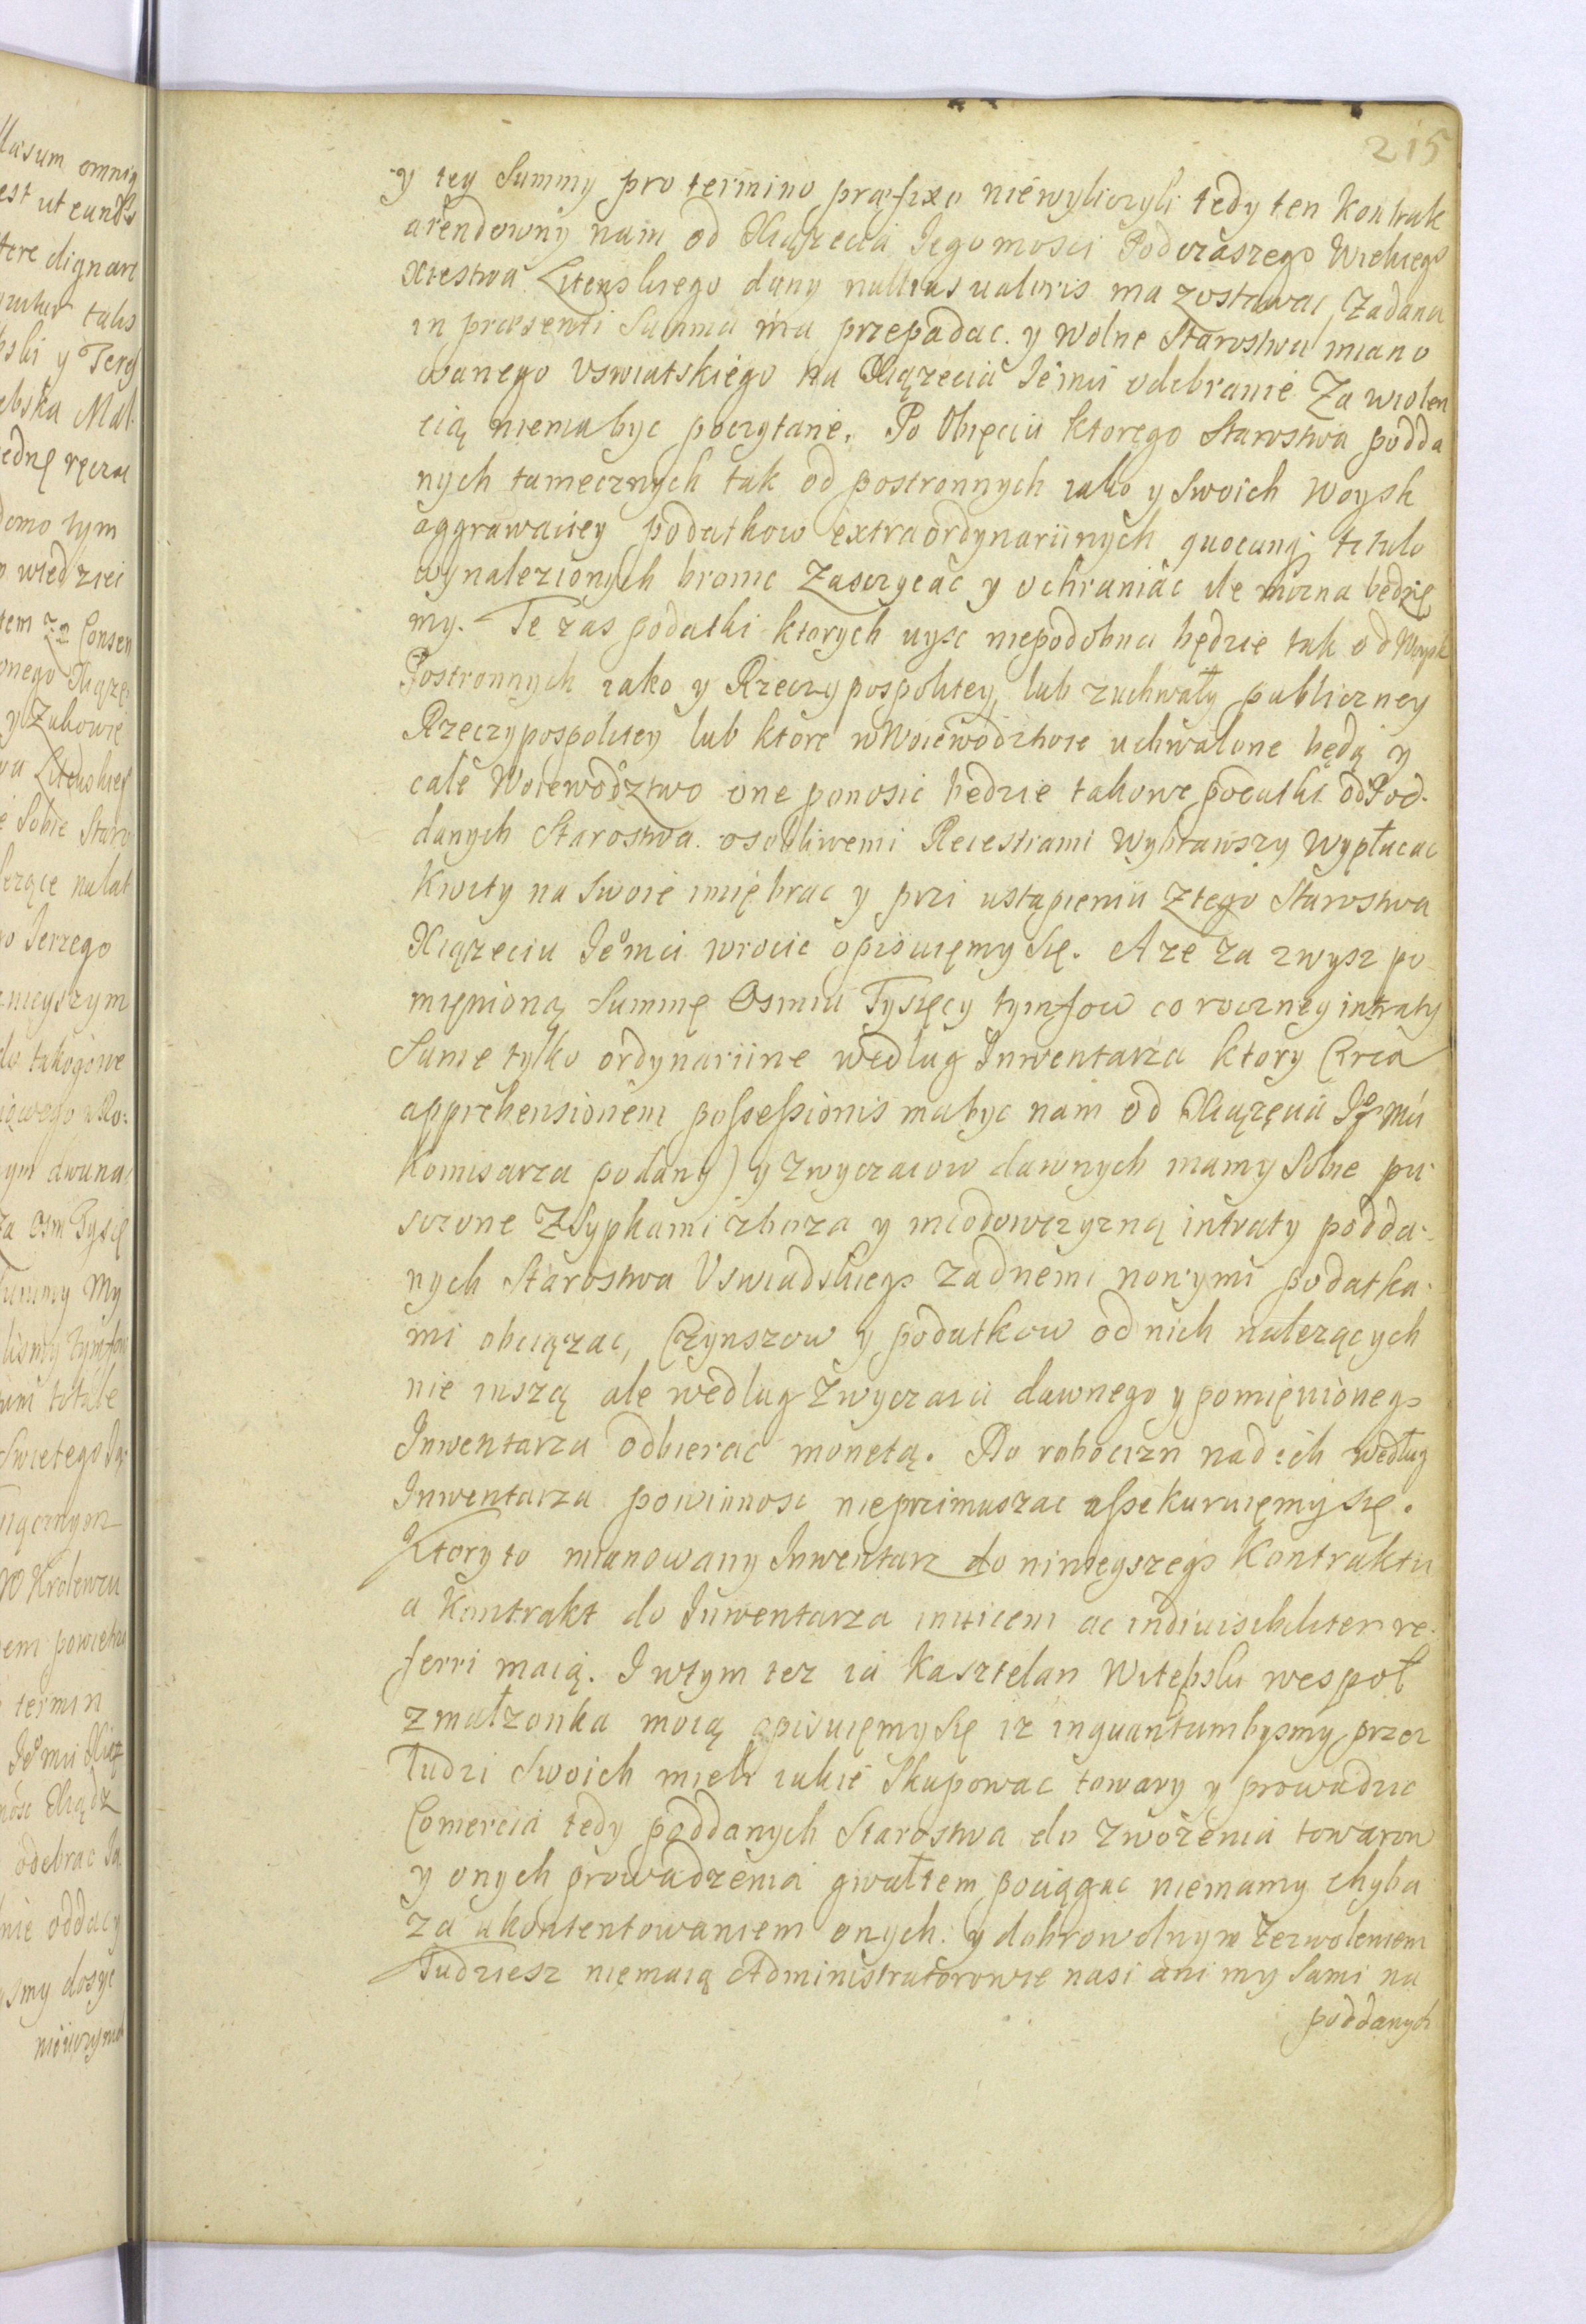 215
y tey Summy pro termino præfixo niewyliczyli tedy ten kontrak
arendowny nam od Xiążęcia Jegomosci Podczaszego Wielkiego
Xięstwa Litewskiego dany nullius ualoris ma zostawac, Zadana
in præsenti Summa ma przepadac. y Wolne Starostwa miano
wanego Vswiatskiego na Xiążęcia Jemci odebranie Za wiolen
cią niema byc poczytane. Po Obięciu ktorego Starostwa podda
nych tamecznych tak od postronnych iako y Swoich woysk
aggrawaciey podatkow extraordynariinych quocunq titulo
wynalezionych bronic Zasczycac y ochraniac ile mozna będzie
my. Te zas podatki ktorych uysc niepodobna będzie tak od Woysk
Postronnych iako y Rzeczypospolitey, lub z uchwały publiczney
Rzeczypospolitey lub ktore w Woiewodztwie uchwalone będą y
całe Woiewodztwo one ponosic będzie takowe podatki od Pod-
danych Starostwa osobliwemi Reiestrami Wybrawszy wypłacac
Kwity na Swoie imię brac y przi ustąpieniu Ztego Starostwa
Xiążęciu Jeomci wrocic opisuięmy się. A ze za zwysz po-
mięnioną Summę Osmiu Tysięcy tymfow co roczney intraty
Same tylko ordynariine według Inwentarza ktory Circa
apprehensionem possessionis ma byc nam od Xiążęcia Jegmci
Komisarza podany) y Zwyczaiow dawnych mamy Sobie pu-
sczone Z Sypkami zboza y miodowczyzną intraty podda-
nych Starostwa Vswiadskiego zadnemi nowymi podatka-
mi obciązac, Czynszow y podatkow od nich nalezących
nie iuszą ale według Zwyczaiu dawnego y pomięnionego
Inwentarza odbierac monetą. Do robocizn nad ich według
Inwentarza powinnosc nieprzimuszac assekuruięmy się.
Ktory to mianowany Inwentarz do ninieyszego Kontraktu
a Kontrakt do Inwentarza inuicem ac indiuisibiliter re-
ferri maią. I wtym tez ia Kasztelan Witepski wespoł
z małzonka moią opisuięmy się iz inquantumbysmy przez
ludzi Swoich mieli iakie Skupowac towary y prowadzic
Comercia tedy poddanych Starostwa do zwozenia towarow
y onych prowadzenia gwałtem pociągac niemamy chyba
za ukontentowaniem onych. y dobrowolnym Zezwoleniem
Tudziesz niemaią Administratorowie nasi ani my Sami na
poddanych